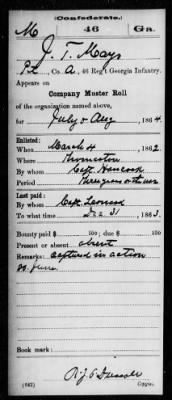 (Confederate.)
M 46 Ga.
J. T. Mays
Pvt, Co. A, 46 Reg't Georgia Infantry.
Appears on
Company Muster Roll
of the organization named above,
for July & Aug, 1864.
Enlisted:
When March 4, 1862.
Where Thomaston
By whom Capt. Hancock
Period Three years or the war
Last paid:
By whom Capt.
To what time Dec 31, 1863.
Bounty paid $ 100; due $ 100
Present or absent absent
Remarks: captured in action
June
Book mark:
(642) Copyist.